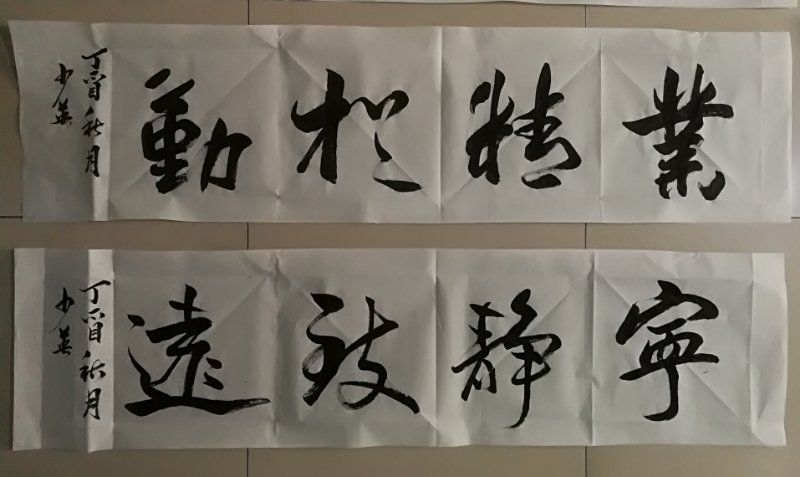 業精於勤
丁酉秋月
少英
寧静致遠
丁酉秋月
少英